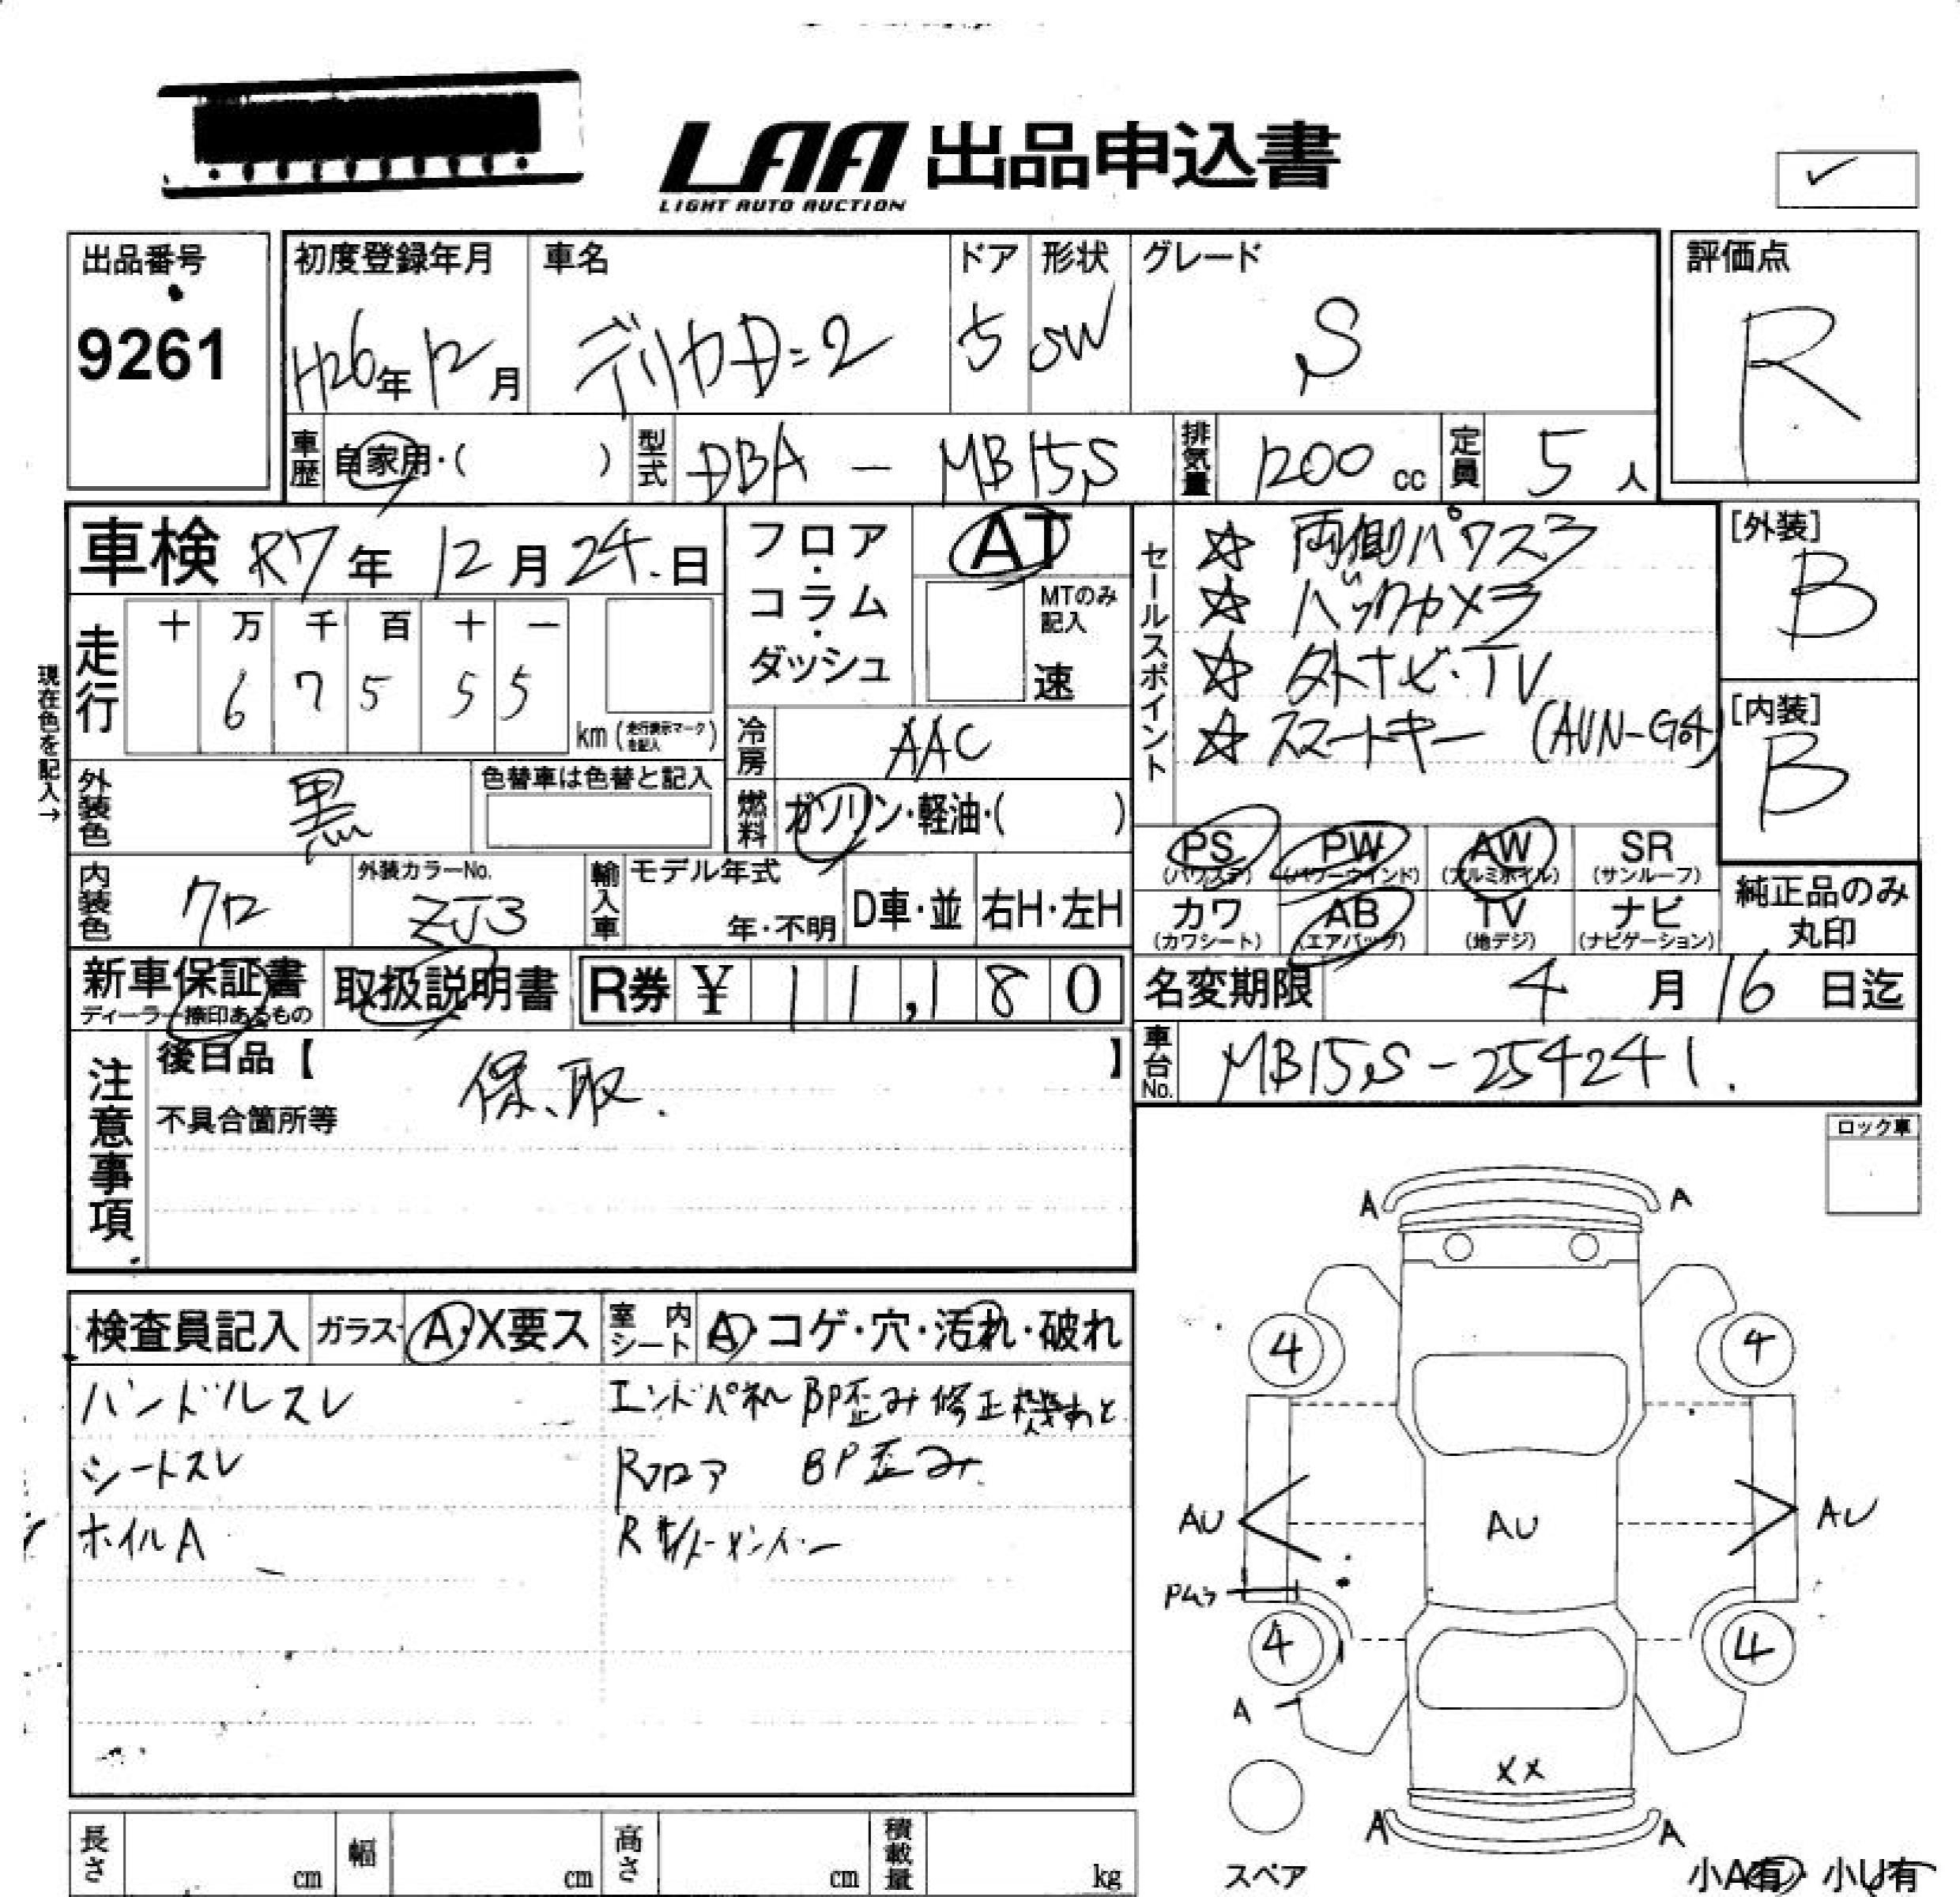 LAA 出品申込書
LIGHT AUTO AUCTION
✓
出品番号
9261
初度登録年月
H26年12月
車名
デリカD:2
ドア
5
形状
SW
グレード
S
評価点
R
車歴 自家用・( )
型式 DBA - MB15S
排気量 1200 cc
定員 5 人
車検 R7年12月24日
フロア・コラム・ダッシュ
AT
MTのみ記入
速
走行
十 万 千 百 十 一
6 7 5 5 5
km (走行表示マークを記入)
現在色を記入→
冷房 AAC
燃料 ガソリン・軽油・( )
外装色 黒
色替車は色替と記入
内装色 クロ
外装カラーNo.
ZJ3
輸入車 モデル年式
年・不明
D車・並
右H・左H
セールスポイント
☆ 両側パワスラ
☆ バックカメラ
☆ 外ナビ・TV
☆ スマートキー (AUN-G64)
[外装]
B
[内装]
B
PS (パワステ)
PW (パワーウインド)
AW (アルミホイル)
SR (サンルーフ)
カワ (カワシート)
AB (エアバッグ)
TV (地デジ)
ナビ (ナビゲーション)
純正品のみ丸印
新車保証書
ディーラー捺印あるもの
取扱説明書
R券 ¥ 11,180
名変期限 4月16日迄
車台No. MB15S-254241.
注意事項
後日品【 保、取. 】
不具合箇所等
ロック車
検査員記入
ガラス・A・X要ス
室内シート A・コゲ・穴・汚れ・破れ
ハンドルスレ
シートスレ
ホイルA
エンドパネル BP歪み修正機あと
Rフロア BP歪み
A A
4 4
AU AU AU
4 4
A
XX
A A
スペア
小A有・小U有
長さ cm
幅 cm
高さ cm
積載量 kg